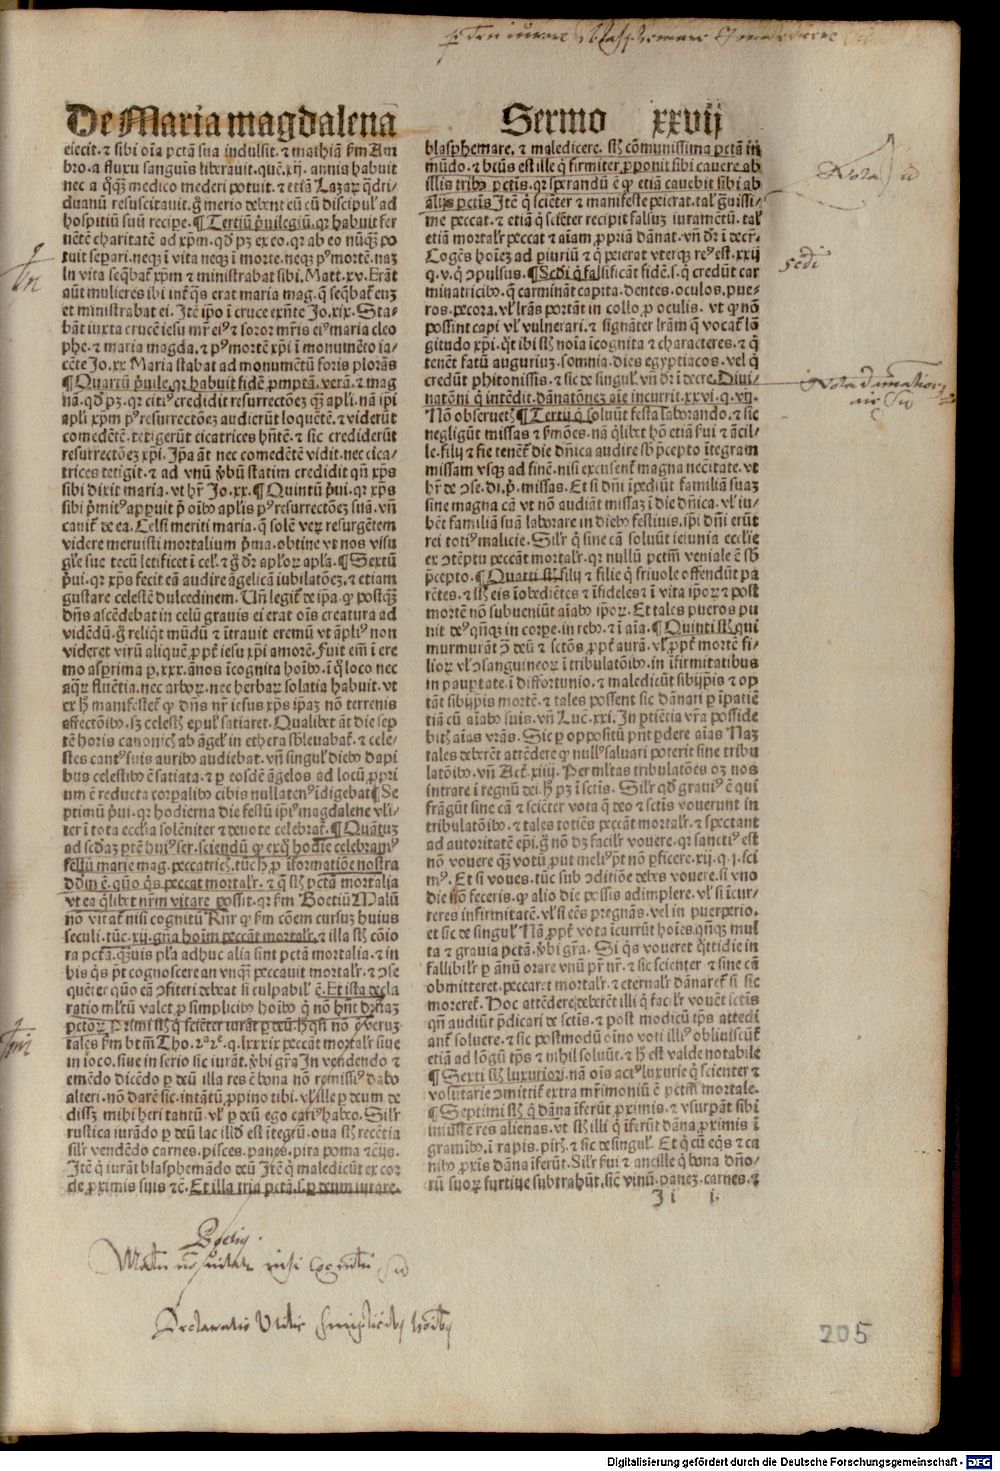 De Maria magdalena
Sermo xxvij
eiecit. ⁊ sibi oīa pctā sua indulsit. ⁊ mathiā km̄ Am
bro. a fluxu sanguis liberauit. quē. xij. annis habuit
nec a q̄q̄ medico mederi potuit. ⁊ etiā Lazaꝝ q̄dri/
duanū resuscitauit. ḡ merio debent eū cū discipul̓ ad
hospitiū suū recipe. ¶ Tertiū p̄uilegiū. qꝛ habuit fer
uētē charitatē ad xp̄m. qd̓ pꝫ ex eo. qꝛ ab eo nūq̄ꝫ po
tuit separi. neqꝫ ī vita neqꝫ ī morte. neqꝫ pꝰ mortē. naꝫ
ī vita seq̄bat̄ xp̄m ⁊ ministrabat sibi. Matt. xv. Erāt
aūt mulieres ibi int̄ q̄s erat maria mag. q̄ seq̄bat̄ euꝫ
et ministrabat ei. Itē ip̄o ī cruce exn̄te Jo. xix. Sta-
bāt iuxta crucē iesu mr̄ eiꝰ ⁊ soror mr̄is eiꝰ maria cleo
phe. ⁊ maria magda. ⁊ pꝰ mortē xp̄i ī monumēto ia-
cēte Jo. xx Maria stabat ad monumētū foris plorās
¶ Quartū p̄uile. qꝛ habuit fidē ꝓmptā. verā. ⁊ mag
nā. qd̓ pꝫ. qꝛ citiꝰ credidit resurrectōeꝫ q̄ꝫ apl̓i. nā ip̄i
apl̓i xp̄m pꝰ resurrectōeꝫ audierūt loquētē. ⁊ viderūt
comedētē. tetigerūt cicatrices hn̄tē. ⁊ sic crediderūt
resurrectōeꝫ xp̄i. Ip̄a aūt nec comedētē vidit. nec cica/
trices tetigit. ⁊ ad vnū v̓bū statim credidit qn̄ xp̄s
sibi dixit maria. vt hr̄ Jo. xx. ¶ Quintū p̄ui. qꝛ xp̄s
sibi p̄mitꝰ apparuit p̄ oībꝰ apl̓is pꝰ resurrectōeꝫ suā. vn̄
canit̄ de ea. Celsi meriti maria. q̄ solē veꝝ resurgētem
videre meruisti mortalium p̄ma. obtine vt nos visu
gl̓ie sue tecū letificet ī cel̓. ⁊ ḡ dr̄ apl̓oꝝ apl̓a. ¶ Sextū
p̄ui. qꝛ xp̄s fecit eā audire āgelicā iubilatōeꝫ. ⁊ etiam
gustare celestē dulcedinem. Vn̄ legit̄ de ip̄a. ꝙ postq̄ꝫ
dn̄s ascēdebat in celū grauis ei erat oīs creatura ad
vidēdū. ḡ reliq̄t mūdū ⁊ ītrauit eremū vt āpliꝰ non
videret virū aliquē ꝓpt̄ iesu xp̄i amorē. Fuit em̄ ī ere
mo asprima p. xxx. ānos īcognita hoībꝰ. ī q̄ loco nec
aq̄ꝝ fluētia. nec arboꝝ. nec herbaꝝ solatia habuit. vt
ex h̓ manifestet̄ ꝙ dn̄s nr̄ iesus xp̄s ip̄aꝫ nō terrenis
affectōibꝰ. sꝫ celestibꝰ epul̓ satiaret. Qualibet āt die sep
tē horis canonicis ab āgel̓ in ethera subleuabat̄. ⁊ cele/
stes cantꝰ suis auribꝰ audiebat. vn̄ singul̓ diebꝰ dapi
bus celestibꝰ ē satiata. ⁊ p eosdē āgelos ad locū ꝓpri
um ē reducta corꝑalibꝰ cibis nullatenꝰ īdigebat ¶ Se
ptimū p̄ui. qꝛ hodierna die festū ip̄iꝰ magdalene vl̓i-
ter ī tota ecclia solēniter ⁊ deuote celebrat̄. ¶ Quātuꝫ
ad scd̓aꝫ ꝑtē huiꝰ ser. sciendū ꝙ exq̄ hodie celebramꝰ
festū marie mag. peccatricꝭ. tūc hꝫ ꝓ īformatiōe nostra
dd̓m ē. quō q̄s peccat mortalr̄. ⁊ q̄ sūt pctā mortalia
vt ea q̄libet nr̄m vitare possit. qꝛ km̄ Boetiū Malū
nō vitat̄ nisi cognitū Rn̄r ꝙ km̄ cōem cursuꝫ huius
seculi. tūc. xij. gn̄a hoīm peccāt mortalr̄. ⁊ illa sūt cōio
ra pctā. q̄uis pl̓a adhuc alia sint pctā mortalia. ⁊ in
his q̄s pt̄ cognoscere an vnq̄ꝫ peccauit mortalr̄. ⁊ ɔse
quēter quō eā ɔfiteri debeat si culpabil̓ ē. Et ista decla
ratio ml̓tū valet ꝓ simplicibꝰ hoībꝰ q̄ nō hn̄t dr̄n̄aꝫ
pctoꝝ. Primi sūt q̄ sciēter iurāt ꝑ deū. hꝫ qn̄ nō ē veruꝫ
tales km̄ btm̄ Tho. 2ª 2ᵉ. q. lxxxix peccāt mortalr̄ siue
in ioco. siue in serio sic iurāt. v̓bi gr̄a In vendendo ⁊
emēdo dicēdo ꝑ deū illa res ē bona nō remissiꝰ dabo
alteri. nō darē sic. intātū ꝓpino tibi. vl̓ ille ꝑ deum de
dissꝫ mihi heri tantū. vl̓ ꝑ deū ego cariꝰ habeo. Silr̄
rustica iurādo ꝑ deū lac illd̓ est ītegrū. oua sūt recētia
silr̄ vendēdo carnes. pisces. panes. pira poma ⁊cīs.
Itē q̄ iurāt blasphemādo deū Itē q̄ maledicūt ex cor
de ꝓximis suis ⁊c̄. Et illa tria pctā. s. ꝑ deum iurare.
blasphemare. ⁊ maledicere. sūt cōmunissima pctā in
mūdo. ⁊ btūs est ille q̄ firmiter ꝓponit sibi cauere ab
illis tribꝰ pctis. qꝛ sperandū ē ꝙ etiā cauebit sibi ab
alijs pctis Itē q̄ sciēter ⁊ manifeste peierat. tal̓ ḡuissi/
me peccat. ⁊ etiā q̄ sciēter recipit falsuꝫ iuramētū. tal̓
etiā mortalr̄ peccat ⁊ aīam ꝓpriā dānat. vn̄ dr̄ ī decr̄.
Cogēs hoīeꝫ ad ꝑiuriū ⁊ q̄ peierat vterqꝫ reꝰ est. xxij
q. v. q̄ ɔpulsus. ¶ Scd̓i q̄ falsificāt fidē. s. q̄ credūt car
minatricibꝰ. q̄ carmināt capita. dentes. oculos. pue-
ros. pecora. vl̓ lr̄as portāt in collo ꝓ oculis. vt ꝙ nō
possint capi vl̓ vulnerari. ⁊ signāter lr̄am q̄ vocat̄ lō
gitudo xp̄i. q̄t ibi sūt noīa īcognita ⁊ characteres. ⁊ q̄
tenēt fatū auguriuꝫ. somnia. dies egyptiacos. vel q̄
credūt phitonissis. ⁊ sic de singul̓. vn̄ dr̄ ī decre. Diui/
natōni q̄ intēdit. dānatōneꝫ aīe incurrit. xxvi. q. vij.
Nō obseruetꝭ ¶ Tertij q̄ soluūt festa laborando. ⁊ sic
negligūt missas ⁊ sermōes. nā q̄libet hō etiā serui ⁊ ancil/
le. filij ⁊ filie tenēt̄ die dn̄ica audire sb̓ p̄cepto ītegram
missam vsqꝫ ad finē. nisi excusent̄ magna necitate. vt
hr̄ de ɔse. di. p̄. missas. Et si dn̄i īpediūt familiā suaꝫ
sine magna cā vt nō audiāt missaꝫ ī die dn̄ica. vl̓ iu/
bēt familiā suā laborare in diebꝰ festiuis. ip̄i dn̄i erūt
rei totiꝰ malicie. Silr̄ q̄ sine cā soluūt ieiunia ecclie
ex ɔtēptu peccāt mortalr̄. qꝛ nullū pctm̄ veniale ē sb̓
p̄cepto. ¶ Quarti sūt filij ⁊ filie q̄ friuole offendūt pa
rētes. ⁊ sūt eis īobediētes ⁊ īfideles ⁊ ī vita ip̄oꝝ ⁊ post
mortē nō subueniūt aīabꝰ ip̄oꝝ. Et tales pueros pu
nit deꝰ qn̄qꝫ in corpe. in rebꝰ. ⁊ ī aīa. ¶ Quinti sūt qui
murmurāt ɔ̄ deū ⁊ sctōs ꝓpt̄ aurā. vl̓ ꝓpt̄ mortē fi-
lioꝝ vl̓ ɔsanguineoꝝ ī tribulatōibꝰ. in īfirmitatibus
in pauptate. ī diffortunio. ⁊ maledicūt sibijpis ⁊ op
tāt sibijpis mortē. ⁊ tales possent sic dānari ꝑ īpatiē
tiā cū aīabꝰ suis. vn̄ Luc̄. xxi. In patiētia vr̄a posside
bitꝭ aīas vr̄as. Sic ꝑ oppositū pn̄t ꝑdere aīas Naꝫ
tales deberēt attēdere ꝙ nullꝰ saluari poterit sine tribu
latōibꝰ. vn̄ Act̄. xiiij. Per ml̓tas tribulatōes oꝫ nos
intrare ī regnū dei. hꝫ pꝫ ī sctīs. Silr̄ qd̓ grauiꝰ ē qui
frāgūt sine cā ⁊ sciēter vota q̄ deo ⁊ sctīs vouerunt in
tribulatōibꝰ. ⁊ tales totiēs peccāt mortalr̄. ⁊ spectant
ad autoritatē ep̄i. ḡ nō dꝫ facilr̄ vouere. qꝛ sanctiꝰ est
nō vouere q̄ꝫ votū ꝓut meliꝰ pt̄ nō ꝑficere. xij. q. j. sci
mꝰ. Et si voues. tūc sub ɔditiōe debes vouere. si vno
die nō feceris. ꝙ alio die possis adimplere. vl̓ si īcur/
reres infirmitatē. vl̓ si eēs pregnās. vel in puerperio.
et sic de singul̓ Nā ꝓpt̄ vota īcurrūt hoīes. qn̄qꝫ mul
ta ⁊ grauia pctā. v̓bi gr̄a. Si q̄s voueret q̄ttidie in
fallibilr̄ ꝑ ānū orare vnū pr̄ nr̄. ⁊ sic scienter ⁊ sine cā
obmitteret. peccaret mortalr̄ ⁊ eternalr̄ dānaret̄ si sic
moreret̄. Hoc attēdere deberēt illi q̄ facilr̄ vouēt sctīs
qn̄ audiūt p̄dicari de sctīs. ⁊ post modicū tp̄s attedi
ant̄ soluere. ⁊ sic postmodū oīno voti illiꝰ obliuiscūt̄
etiā ad lōgū tp̄s ⁊ nihil soluūt. ⁊ hꝫ est valde notabile
¶ Sexti sūt luxuriosi. nā oīs actꝰ luxurie q̄ scienter ⁊
volūtarie ɔmittit̄ extra mr̄imoniū ē pctm̄ mortale.
¶ Septimi sūt q̄ dāna īferūt ꝓximis. ⁊ vsurpāt sibi
iniuste res alienas. vt sūt illi q̄ īferūt dāna ꝓximis ī
gramībꝰ. ī rapis. pirꝭ. ⁊ sic de singul̓. Et q̄ cū eq̄s ⁊ ca
nibꝰ ꝓxīs dāna īferūt. Silr̄ serui ⁊ ancille q̄ bona dn̄o/
rū suoꝝ furtiue subtrahūt. sic̄ vinū. panez. carnes. ⁊
Ji i.
Nota
Scdi
Nota damnationem
Boetius.
Malum non vitatur nisi cognitum
Declaratio Utilis simplicibus hominibus
205
Digitalisierung gefördert durch die Deutsche Forschungsgemeinschaft - DFG